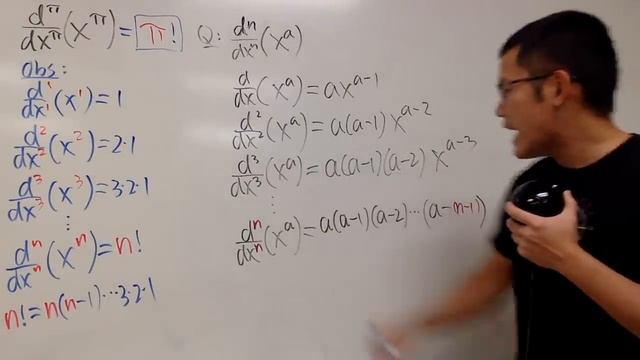 d^π/dx^π (x^π) = π!
Obs:
d^1/dx^1 (x^1) = 1
d^2/dx^2 (x^2) = 2·1
d^3/dx^3 (x^3) = 3·2·1
⋮
d^n/dx^n (x^n) = n!
n! = n(n-1)···3·2·1
Q: d^n/dx^n (x^a)
d/dx (x^a) = ax^(a-1)
d^2/dx^2 (x^a) = a(a-1) x^(a-2)
d^3/dx^3 (x^a) = a(a-1)(a-2) x^(a-3)
⋮
d^n/dx^n (x^a) = a(a-1)(a-2)···(a-n-1))